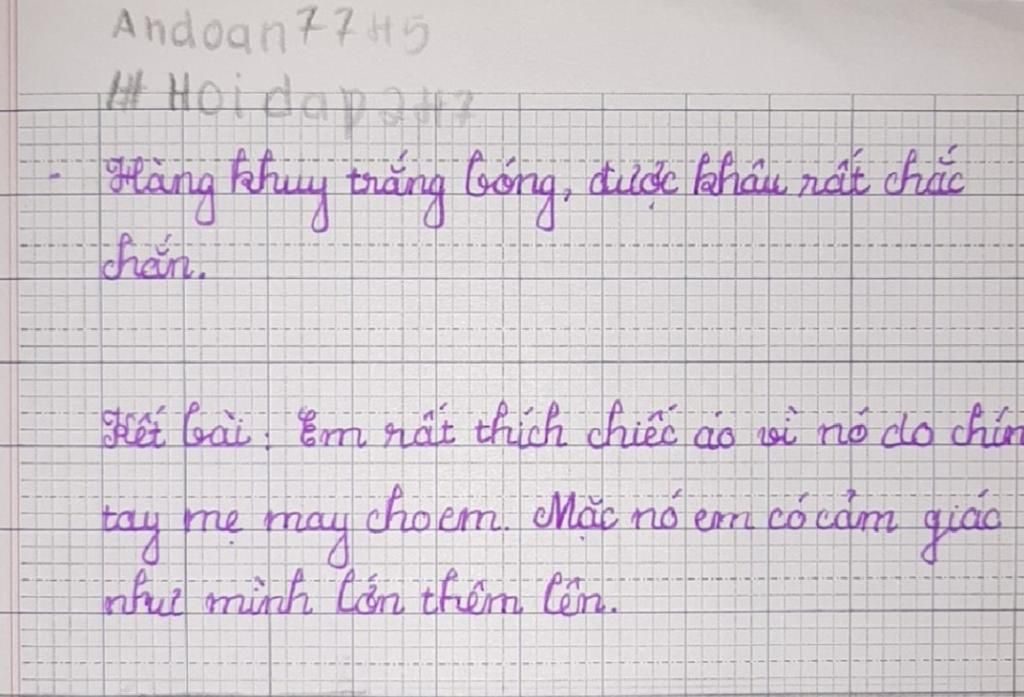 Andoan77H5
# Hoidap247
- Hàng khuy trắng bóng, được khâu rất chắc
chắn.
Kết bài: Em rất thích chiếc áo vì nó do chín
tay mẹ may cho em. Mặc nó em có cảm giác
như mình lớn thêm lên.